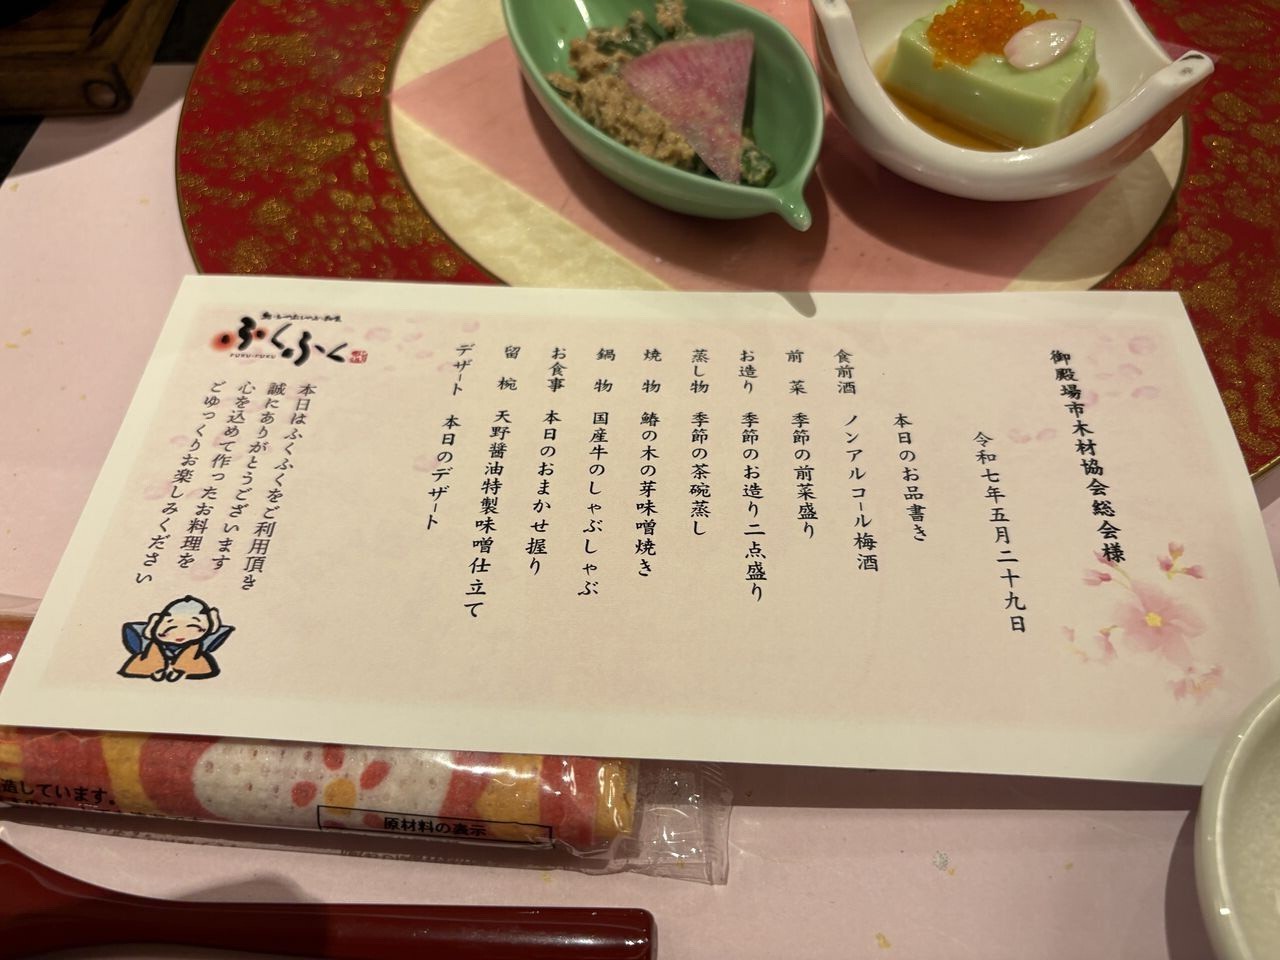 御殿場市木材協会総会様
令和七年五月二十九日
本日のお品書き
食前酒　ノンアルコール梅酒
前　菜　季節の前菜盛り
お造り　季節のお造り二点盛り
蒸し物　季節の茶碗蒸し
焼　物　鰆の木の芽味噌焼き
鍋　物　国産牛のしゃぶしゃぶ
お食事　本日のおまかせ握り
留　椀　天野醤油特製味噌仕立て
デザート　本日のデザート
ふくふく
FUKU-FUKU
本日はふくふくをご利用頂き
誠にありがとうございます
心を込めて作ったお料理を
ごゆっくりお楽しみください
造しています。
原材料の表示